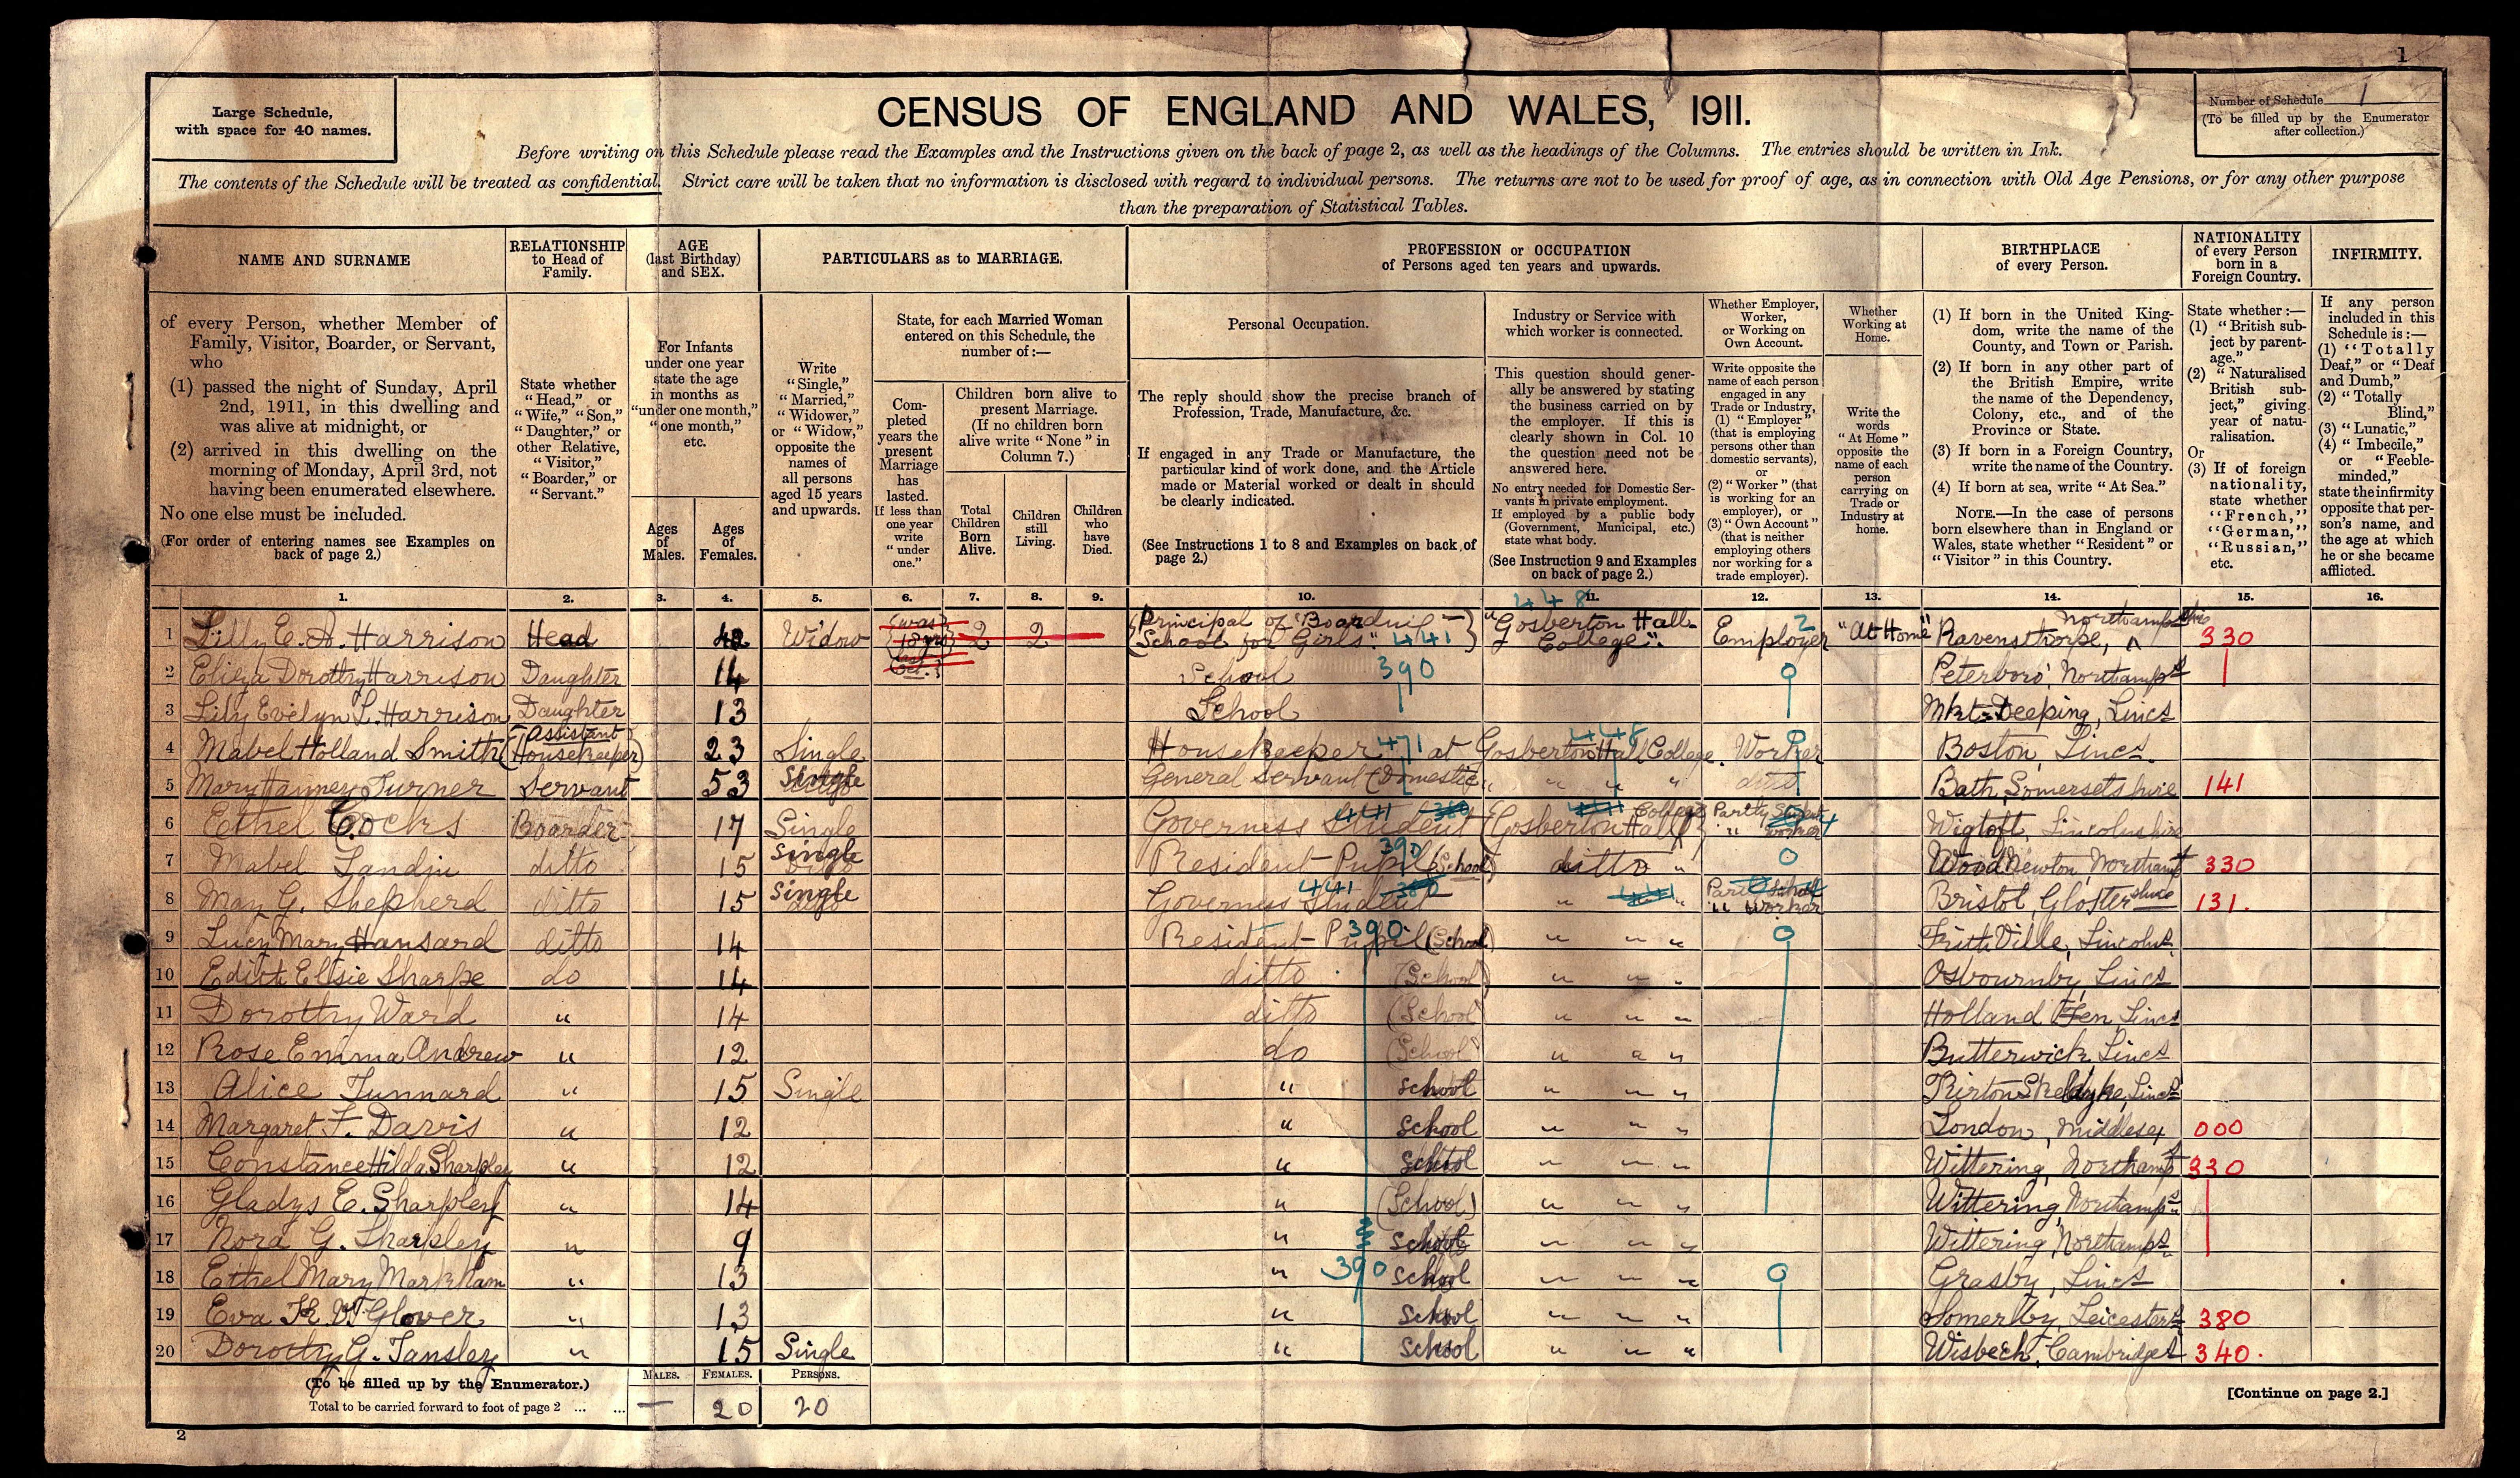 1
Large Schedule,
with space for 40 names.
CENSUS OF ENGLAND AND WALES, 1911.
Number of Schedule 1
(To be filled up by the Enumerator
after collection.)
Before writing on this Schedule please read the Examples and the Instructions given on the back of page 2, as well as the headings of the Columns. The entries should be written in Ink.
The contents of the Schedule will be treated as confidential. Strict care will be taken that no information is disclosed with regard to individual persons. The returns are not to be used for proof of age, as in connection with Old Age Pensions, or for any other purpose
than the preparation of Statistical Tables.
NAME AND SURNAME
of every Person, whether Member of
Family, Visitor, Boarder, or Servant,
who
(1) passed the night of Sunday, April
2nd, 1911, in this dwelling and
was alive at midnight, or
(2) arrived in this dwelling on the
morning of Monday, April 3rd, not
having been enumerated elsewhere.
No one else must be included.
(For order of entering names see Examples on
back of page 2.)
RELATIONSHIP
to Head of
Family.
State whether
"Head," or
"Wife," "Son,"
"Daughter," or
other Relative,
"Visitor,"
"Boarder," or
"Servant."
AGE
(last Birthday)
and SEX.
For Infants
under one year
state the age
in months as
"under one month,"
"one month,"
etc.
Ages
of
Males.
Ages
of
Females.
PARTICULARS as to MARRIAGE.
Write
"Single,"
"Married,"
"Widower,"
or "Widow,"
opposite the
names of
all persons
aged 15 years
and upwards.
State, for each Married Woman
entered on this Schedule, the
number of:—
Com-
pleted
years the
present
Marriage
has
lasted.
If less than
one year
write
"under
one."
Children born alive to
present Marriage.
(If no children born
alive write "None" in
Column 7.)
Total
Children
Born
Alive.
Children
still
Living.
Children
who
have
Died.
PROFESSION or OCCUPATION
of Persons aged ten years and upwards.
Personal Occupation.
The reply should show the precise branch of
Profession, Trade, Manufacture, &c.
If engaged in any Trade or Manufacture, the
particular kind of work done, and the Article
made or Material worked or dealt in should
be clearly indicated.
(See Instructions 1 to 8 and Examples on back of
page 2.)
Industry or Service with
which worker is connected.
This question should gener-
ally be answered by stating
the business carried on by
the employer. If this is
clearly shown in Col. 10
the question need not be
answered here.
No entry needed for Domestic Ser-
vants in private employment.
If employed by a public body
(Government, Municipal, etc.)
state what body.
(See Instruction 9 and Examples
on back of page 2.)
Whether Employer,
Worker,
or Working on
Own Account.
Write opposite the
name of each person
engaged in any
Trade or Industry,
(1) "Employer"
(that is employing
persons other than
domestic servants),
or
(2) "Worker" (that
is working for an
employer), or
(3) "Own Account"
(that is neither
employing others
nor working for a
trade employer).
Whether
Working at
Home.
Write the
words
"At Home"
opposite the
name of each
person
carrying on
Trade or
Industry at
home.
BIRTHPLACE
of every Person.
(1) If born in the United King-
dom, write the name of the
County, and Town or Parish.
(2) If born in any other part of
the British Empire, write
the name of the Dependency,
Colony, etc., and of the
Province or State.
(3) If born in a Foreign Country,
write the name of the Country.
(4) If born at sea, write "At Sea."
NOTE.—In the case of persons
born elsewhere than in England or
Wales, state whether "Resident" or
"Visitor" in this Country.
NATIONALITY
of every Person
born in a
Foreign Country.
State whether:—
(1) "British sub-
ject by parent-
age."
(2) "Naturalised
British sub-
ject," giving
year of natu-
ralisation.
Or
(3) If of foreign
nationality,
state whether
"French,"
"German,"
"Russian,"
etc.
INFIRMITY.
If any person
included in this
Schedule is:—
(1) "Totally
Deaf," or "Deaf
and Dumb,"
(2) "Totally
Blind,"
(3) "Lunatic,"
(4) "Imbecile,"
or "Feeble-
minded,"
state the infirmity
opposite that per-
son's name, and
the age at which
he or she became
afflicted.
1. 2. 3. 4. 5. 6. 7. 8. 9. 10. 11. 12. 13. 14. 15. 16.
1 Lilly E. A. Harrison Head 42 Widow 2 2 Principal of "Boarding School for Girls." 441 "Gosberton Hall College". 448 Employer 2 "At Home" Ravensthorpe, 330
2 Eliza Dorothy Harrison Daughter 14 School 390 0 Peterboro', Northampts
3 Lily Evelyn L. Harrison Daughter 13 School Mkt-Deeping, Lincs
4 Mabel Holland Smith (Assistant Housekeeper) 23 Single Housekeeper 471 at Gosberton Hall College. 448 Worker 0 Boston, Lincs.
5 Mary Turner Servant 53 Single General Servant (Domestic) " " " ditto Bath, Somersetshire 141
6 Ethel Cocks Boarder 17 Single Governess Student 441 (Gosberton Hall College) Partly Student " Worker Wigtoft, Lincolnshire
7 Mabel Landin ditto 15 Single Resident-Pupil (School) 390 ditto " 0 Wood Newton, Northants 330
8 May G. Shepherd ditto 15 Single Governess Student 441 " " " Worker Bristol, Glostershire 131.
9 Lucy Mary Hansard ditto 14 Resident-Pupil (School) 390 " " " 0 Frith Ville, Lincolns.
10 Edith Elsie Sharpe do 14 ditto (School) " " " Osbournby, Lincs
11 Dorothy Ward " 14 ditto (School) " " " Holland Fen Lincs
12 Rose Emma Andrew " 12 do (School) " " " Butterwick Lincs
13 Alice Tunnard " 15 Single " school " " " Kirton Skeldyke, Lincs
14 Margaret F. Davis " 12 " school " " " London, Middlesex 000
15 Constance Hilda Sharpley " 12 " school " " " Wittering, Northampt 330
16 Gladys E. Sharpley " 14 " (School) " " " Wittering, Northampts
17 Nora G. Sharpley " 9 " school " " " Wittering, Northampts
18 Ethel Mary Markham " 13 " 390 school " " " 0 Grasby, Lincs
19 Eva Glover " 13 " school " " " Somerby, Leicesters 380
20 Dorothy G. Tansley " 15 Single " school " " " Wisbech, Cambridges 340.
(To be filled up by the Enumerator.)
Total to be carried forward to foot of page 2 ... ...
MALES. FEMALES. PERSONS.
— 20 20
[Continue on page 2.]
2